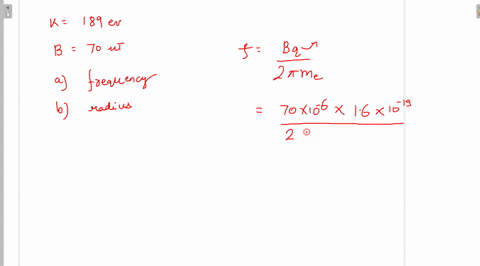 K = 189 ev
B = 70 uT
a) frequency
b) radius
f = Bqr / 2πme
= 70 × 10^6 × 1.6 × 10^-19 / 2